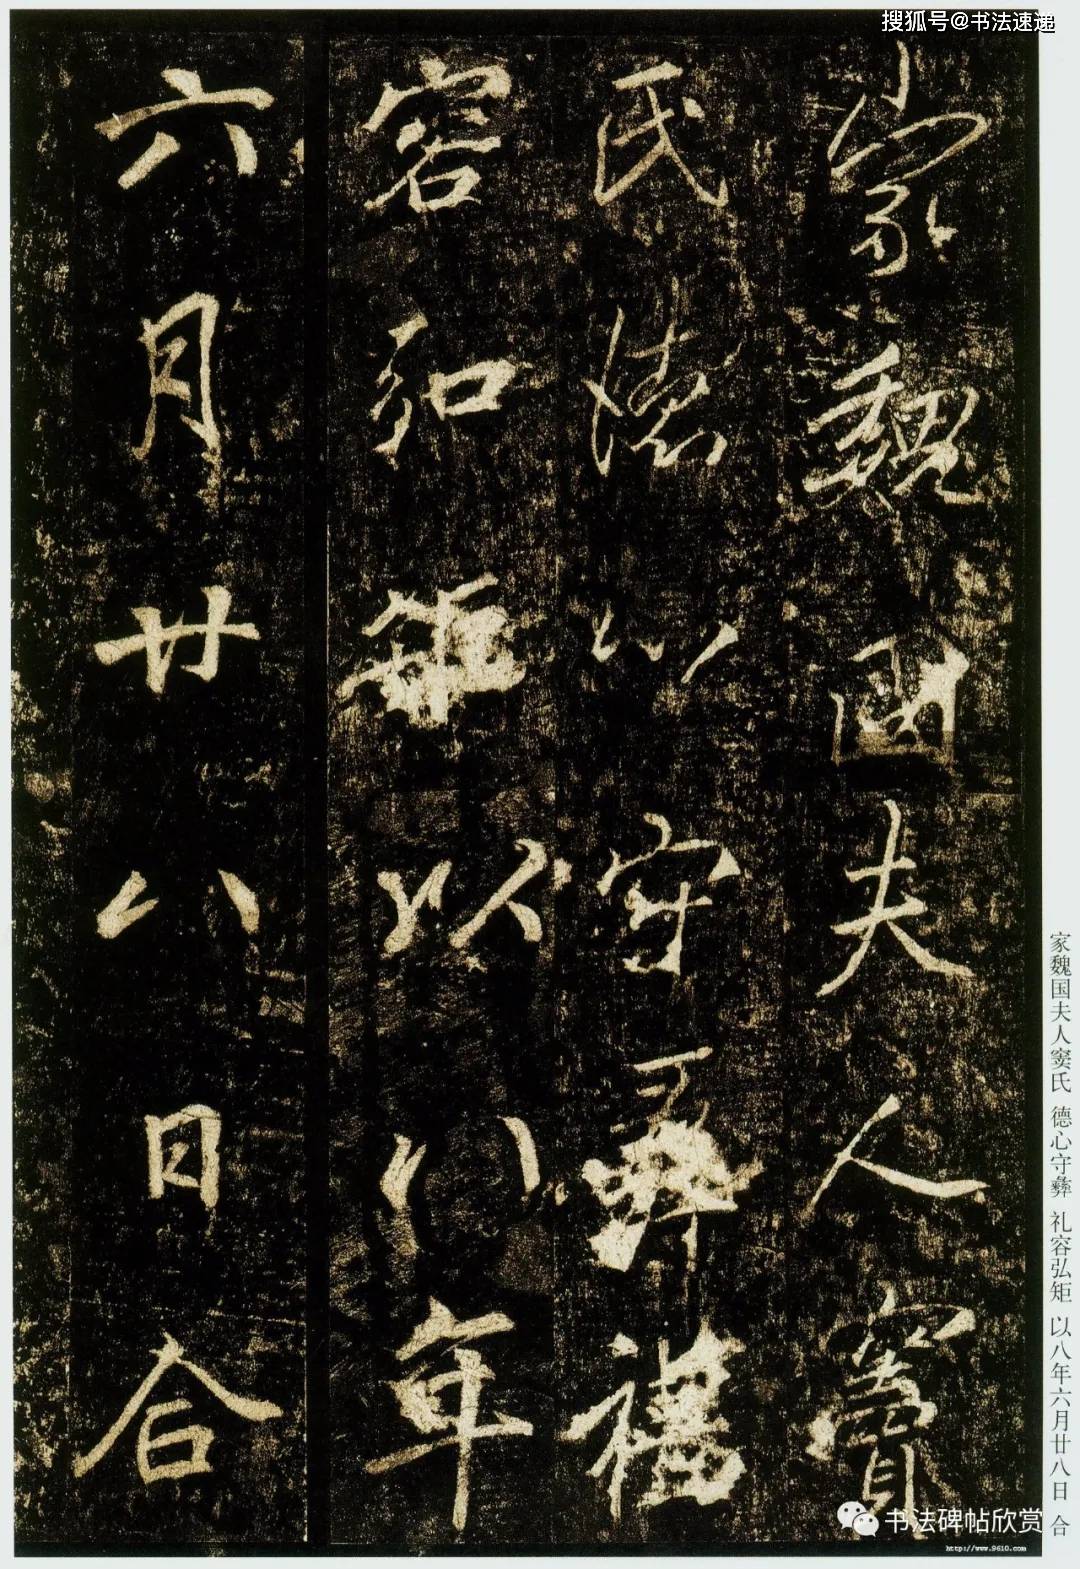 搜狐号@书法速递
家魏國夫人竇
氏德心守彝禮
容弘矩以八年
六月廿八日合
家魏国夫人窦氏 德心守彝 礼容弘矩 以八年六月廿八日 合
书法碑帖欣赏
http://www.9610.com